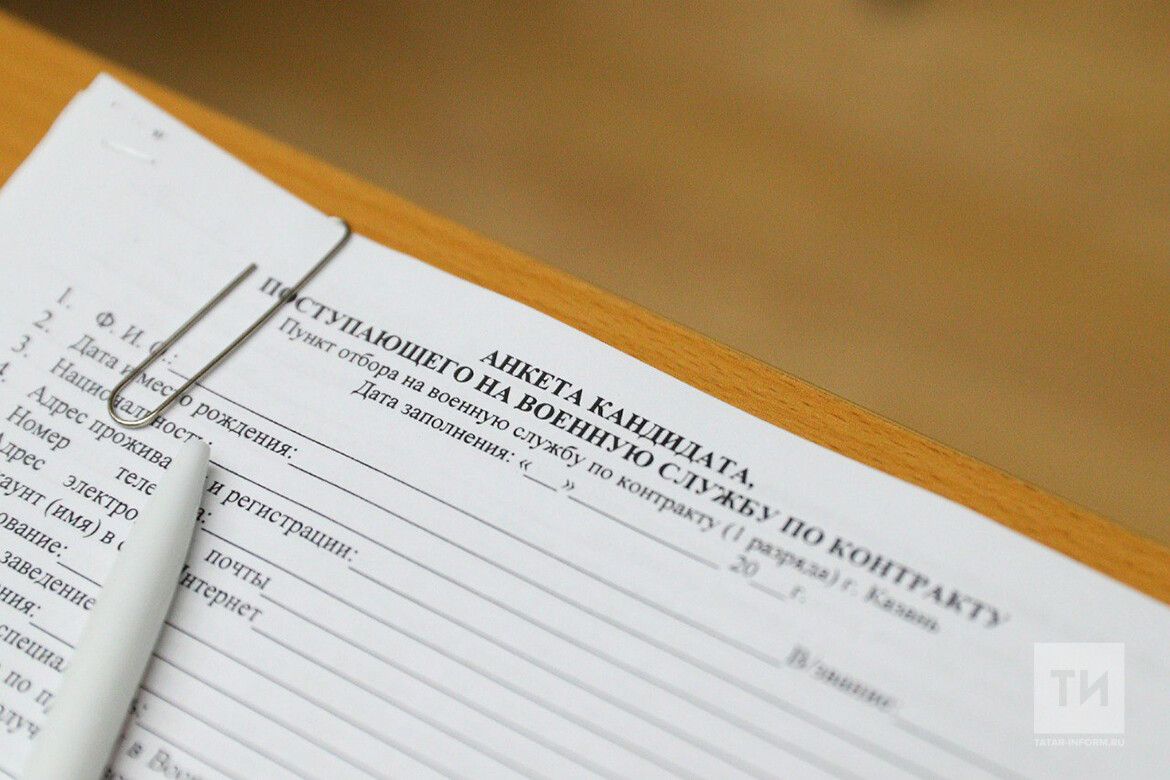 АНКЕТА КАНДИДАТА,
ПОСТУПАЮЩЕГО НА ВОЕННУЮ СЛУЖБУ ПО КОНТРАКТУ
Пункт отбора на военную службу по контракту (1 разряда) г. Казань
Дата заполнения: «___»____________ 20___г.
1. Ф. И. О.:____________ В/звание:
2. Дата и место рождения:____________
3. Национальность:____________
4. Адрес прожива и регистрации:____________
Номер теле
Адрес электро почты
аунт (имя) в Интернет
ование:
заведение
ния:
специа
по
получ
в
ТИ
TATAR-INFORM.RU